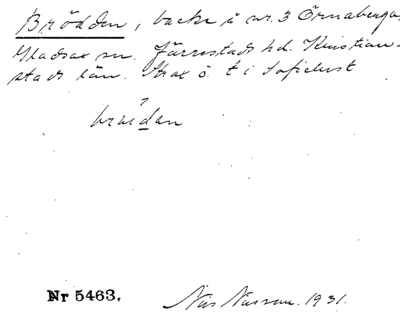 Brödden, backe å nr. 3 Örnaberga,
Gladsax sn. Järrestads hd. Kristian-
stads län. Strax ö. t i Sofielust
Nr 5463. Nils Nilsson. 1931.